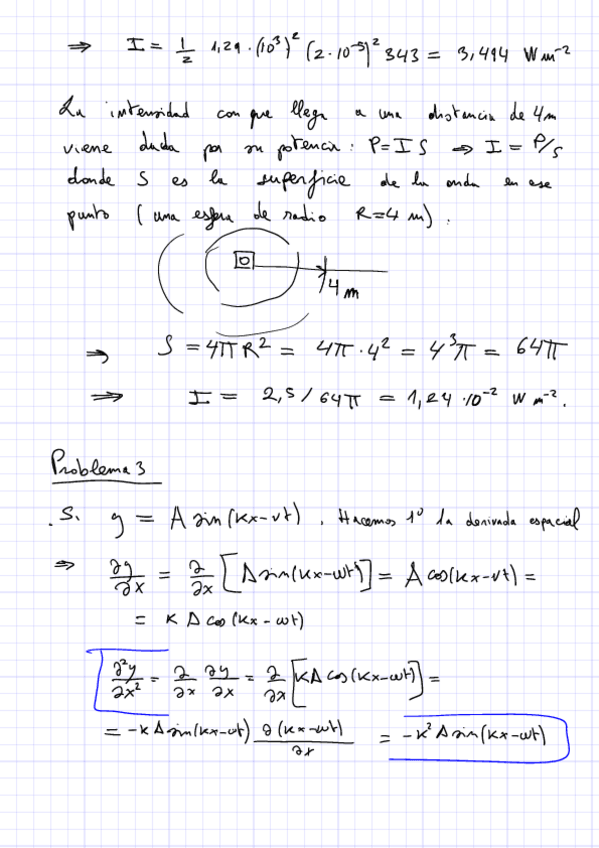 ⇒ I = 1/2 1,29 · (10³)² (2·10⁻⁵)² 343 = 3,494 W m⁻²
La intensidad con que llega a una distancia de 4m
viene dada por su potencia: P = I S ⇒ I = P/S
donde S es la superficie de la onda en ese
punto ( una esfera de radio R=4 m).
4 m
⇒ S = 4πR² = 4π·4² = 4³π = 64π
⇒ I = 2,5 / 64π = 1,24 · 10⁻² W m⁻².
Problema 3
S. y = A sin(kx-vt). Hacemos 1º la derivada espacial
⇒ ∂y/∂x = ∂/∂x [A sin(kx-ωt)] = A cos(kx-vt) =
= k A cos(kx - ωt)
∂²y/∂x² = ∂/∂x ∂y/∂x = ∂/∂x [kA cos(kx-ωt)] =
= -k A sin(kx-ωt) ∂(kx-ωt)/∂x = -k² A sin(kx-ωt)